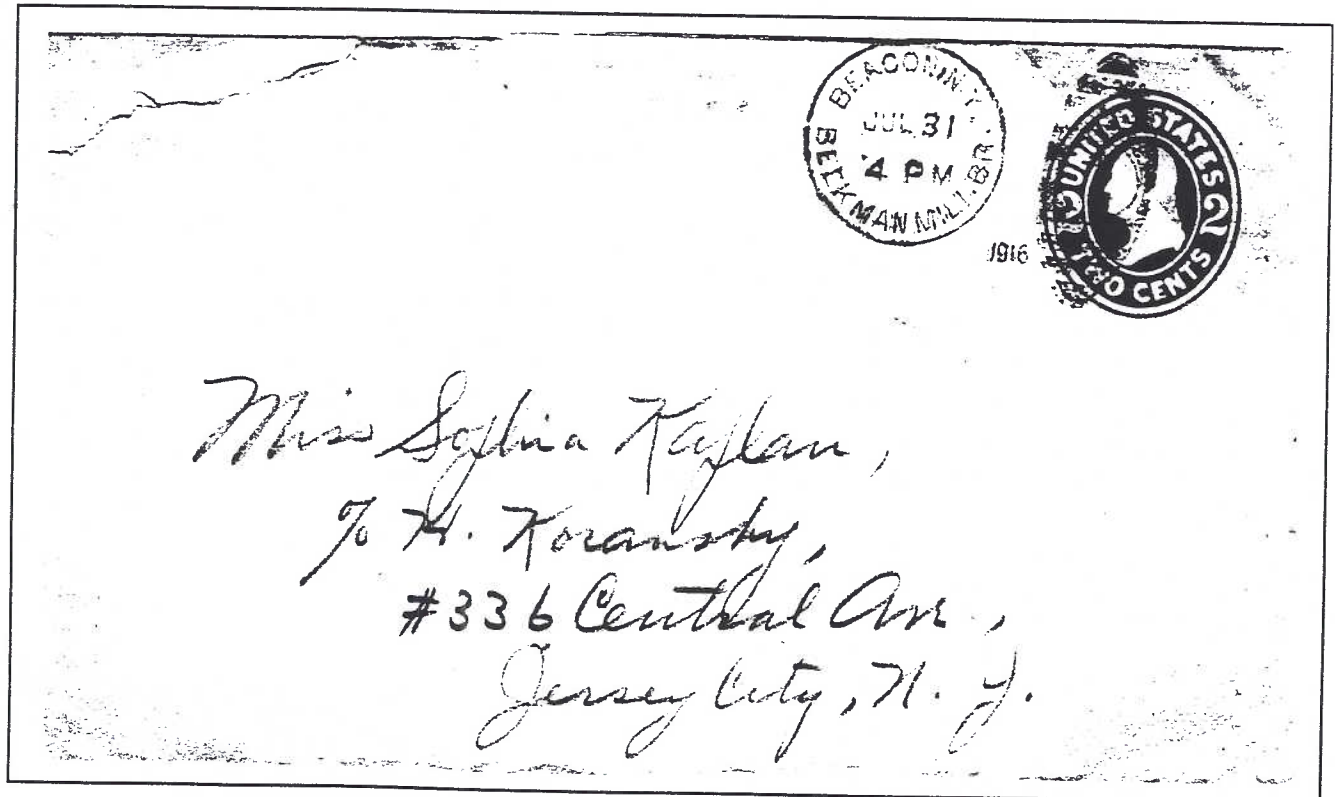 BEACON N.Y.
JUL 31
4 PM
BEEKMAN MIL. BR.
1916
UNITED STATES
2 2
TWO CENTS
Miss Sylvia Kaplan,
c/o H. Koransky,
#336 Central Ave.,
Jersey City, N. J.